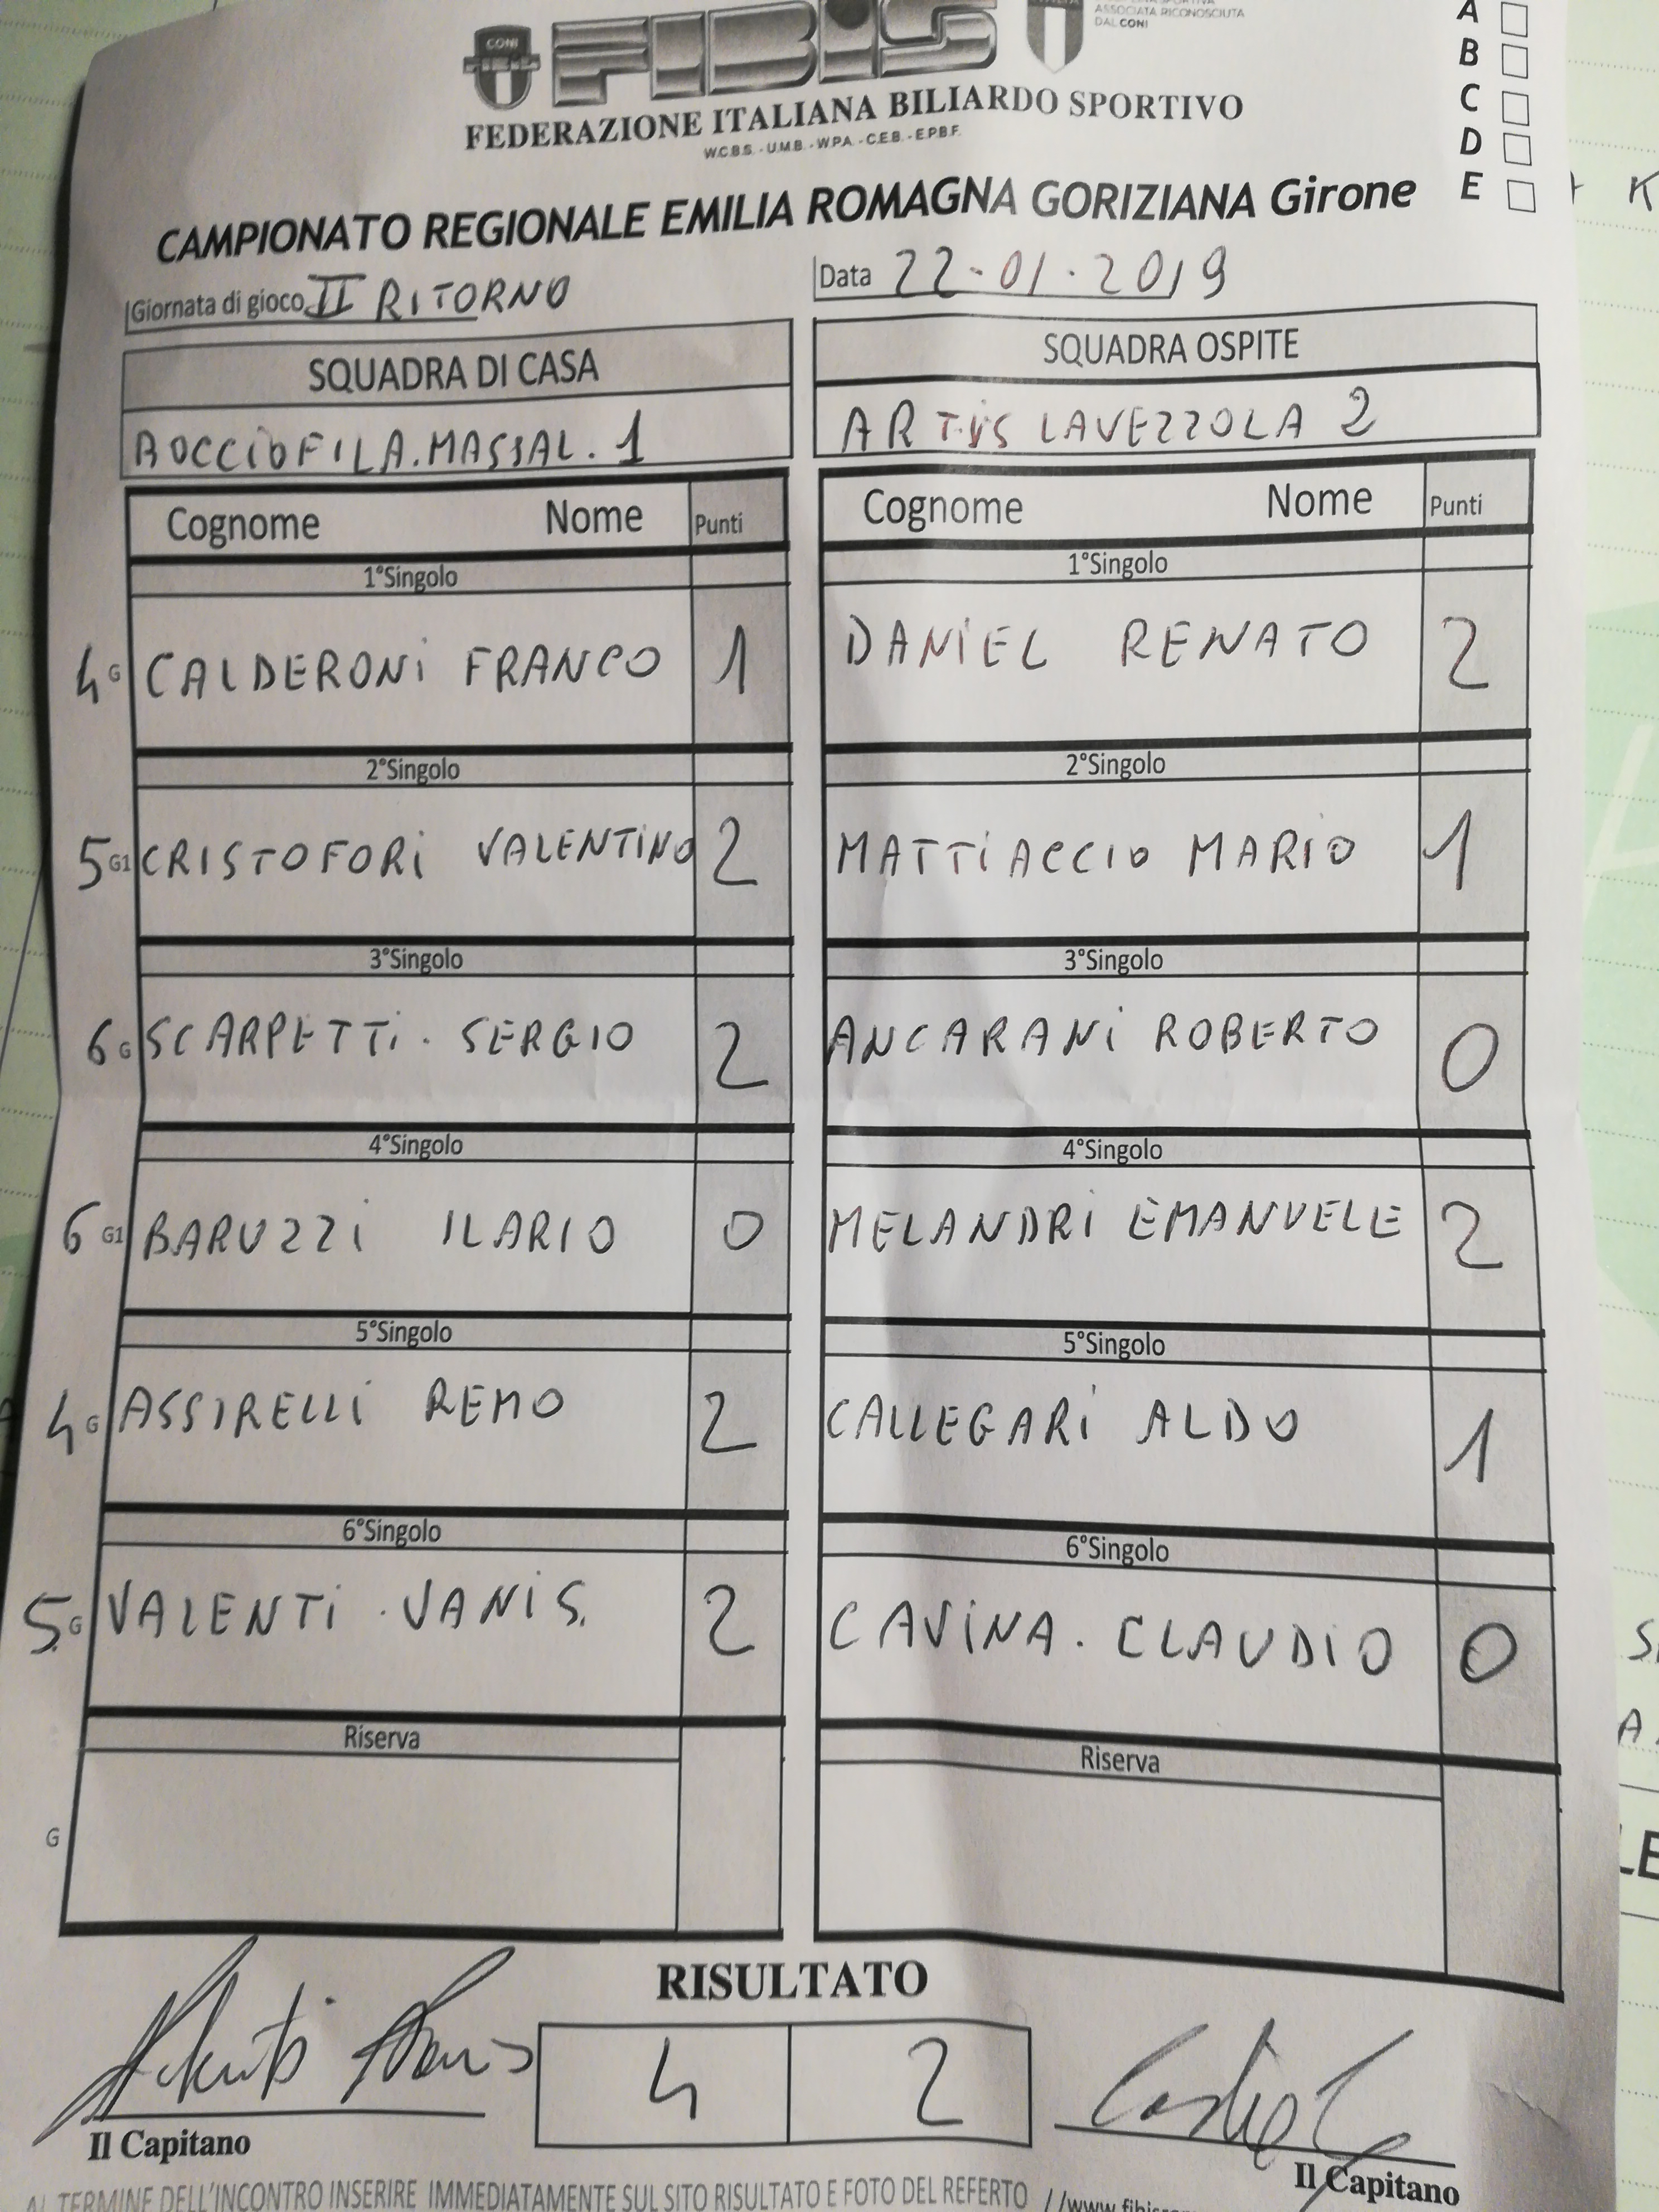 CONI
FIBIS
ASSOCIATA RICONOSCIUTA
DAL CONI
FEDERAZIONE ITALIANA BILIARDO SPORTIVO
W.C.B.S. - U.M.B. - W.P.A. - C.E.B. - E.P.B.F.
A
B
C
D
E
CAMPIONATO REGIONALE EMILIA ROMAGNA GORIZIANA Girone
Giornata di gioco II RITORNO
Data 22-01-2019
SQUADRA DI CASA
SQUADRA OSPITE
BOCCIOFILA.MASSAL. 1
ARTiS LAVEZZOLA 2
Cognome Nome Punti
Cognome Nome Punti
1°Singolo
1°Singolo
4 G CALDERONi FRANCO 1
DANiEL RENATO 2
2°Singolo
2°Singolo
5 G1 CRISTOFORi VALENTiNO 2
MATTiACCIO MARIO 1
3°Singolo
3°Singolo
6 G SCARPETTi. SERGIO 2
ANCARANi ROBERTO 0
4°Singolo
4°Singolo
6 G1 BARUZZi ILARIO 0
MELANDRi EMANUELE 2
5°Singolo
5°Singolo
4 G ASSIRELLi REMO 2
CALLEGARi ALDO 1
6°Singolo
6°Singolo
5. G VALENTi. VANiS. 2
CAViNA. CLAUDIO 0
Riserva
Riserva
G
RISULTATO
4 2
Il Capitano
Il Capitano
AL TERMINE DELL'INCONTRO INSERIRE IMMEDIATAMENTE SUL SITO RISULTATO E FOTO DEL REFERTO